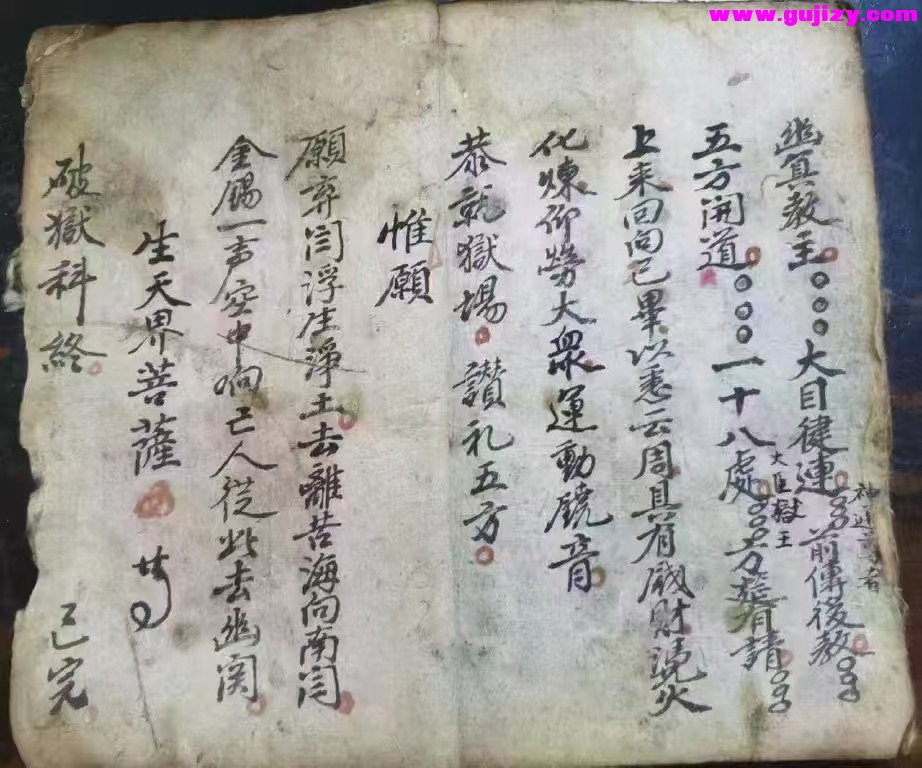 www.gujizy.com
幽冥教主。○○○大目犍連。前傳後教
神通
五方開道。○○○一十八處。方筵有請
大臣獄王
上来回向已畢以悉云周具有戝財凂火
化煉仰勞大衆運動鐃音
恭就獄場。讃礼五方。
惟願
願弃閆浮生淨土去離苦海向南閆
金錫一声空中响亡人從此去幽関
生天界菩薩
破獄科終。 已完